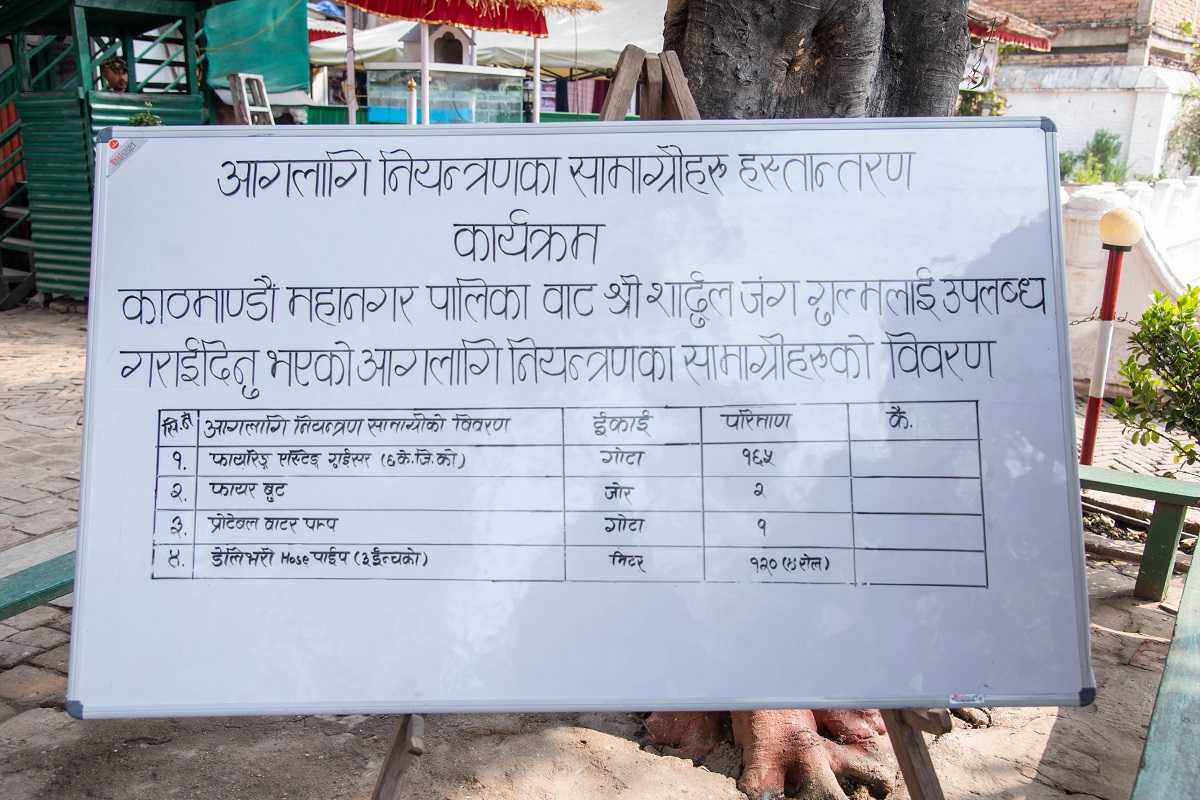 आगलागि नियन्त्रणका सामाग्रीहरु हस्तान्तरण
कार्यक्रम
काठमाण्डौं महानगर पालिका वाट श्री शार्दुल जंग गुल्मलाई उपलब्ध
गराईदिनु भएको आगलागि नियन्त्रणका सामाग्रीहरुको विवरण
सि.नं आगलागि नियन्त्रण सामाग्रीको विवरण ईकाई परिमाण कै.
१. फायरिङ्ग एस्टिङ्ग गुईसर (६के.जि.को) गोटा १६५
२. फायर बुट जोर २
३. प्रोटेबल वाटर पम्प गोटा १
४. डेलिभरी Hose पाईप (३ईन्चको) मिटर १२० (४रोल)